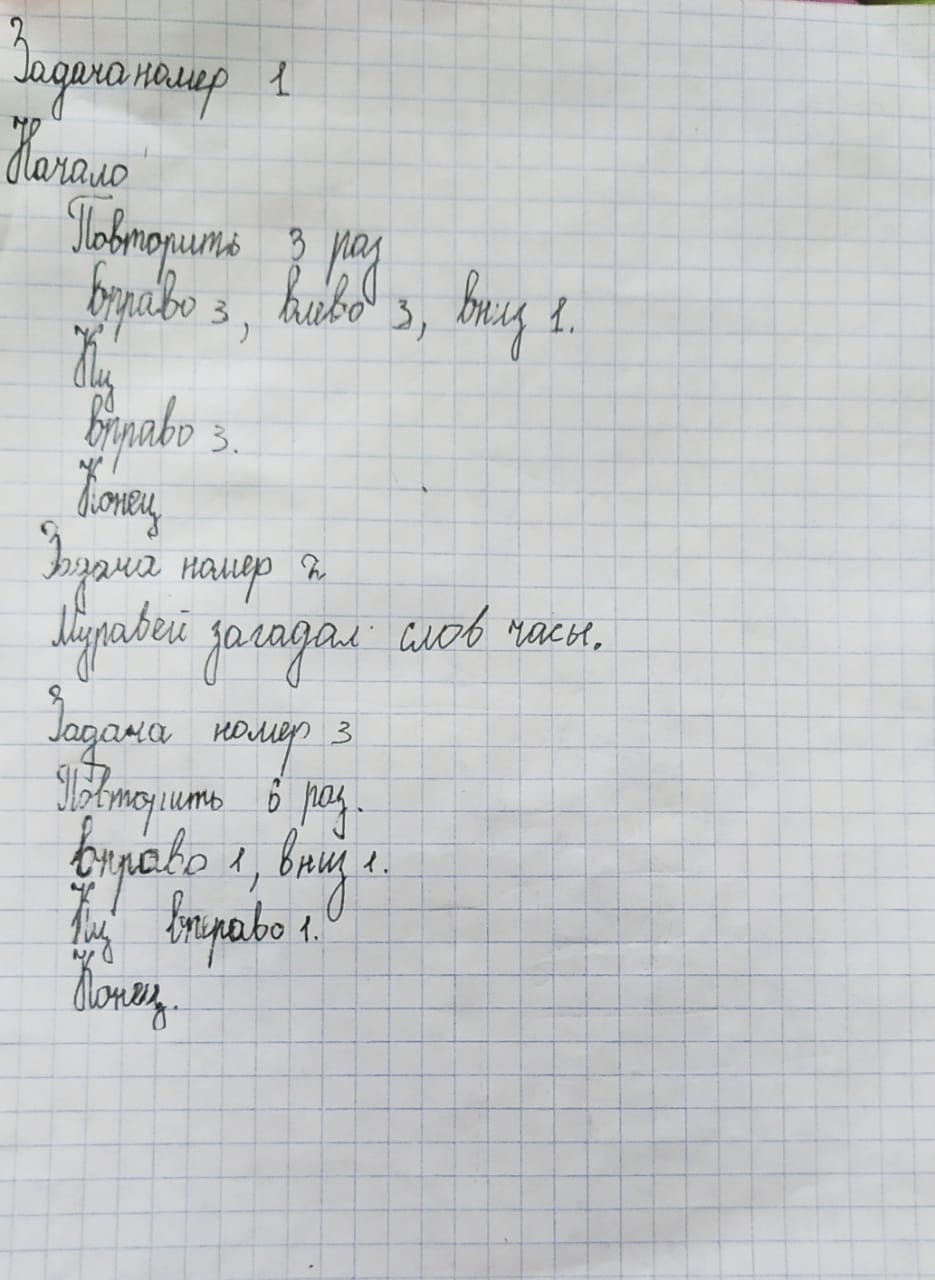 Задача номер 1
Начало
Повторить 3 раз
вправо 3, влево 3, вниз 1.
Кц
вправо 3.
Конец
Задача номер 2
Муравей загадал слов часы.
Задача номер 3
Повторить 6 раз.
вправо 1, вниз 1.
Кц вправо 1.
Конец.